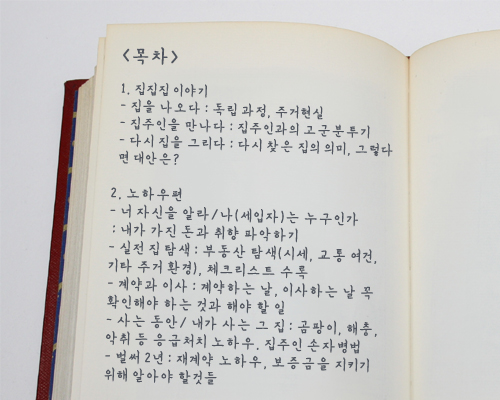 <목차>
1. 집집집 이야기
- 집을 나오다 : 독립 과정, 주거현실
- 집주인을 만나다 : 집주인과의 고군분투기
- 다시 집을 그리다 : 다시 찾은 집의 의미, 그렇다
면 대안은?
2. 노하우편
- 너 자신을 알라/나(세입자)는 누구인가
: 내가 가진 돈과 취향 파악하기
- 실전 집 탐색 : 부동산 탐색(시세, 교통 여건,
기타 주거 환경), 체크리스트 수록
- 계약과 이사 : 계약하는 날, 이사하는 날 꼭
확인해야 하는 것과 해야 할 일
- 사는 동안/ 내가 사는 그 집 : 곰팡이, 해충,
악취 등 응급처치 노하우. 집주인 손자병법
- 벌써 2년 : 재계약 노하우, 보증금을 지키기
위해 알아야 할것들